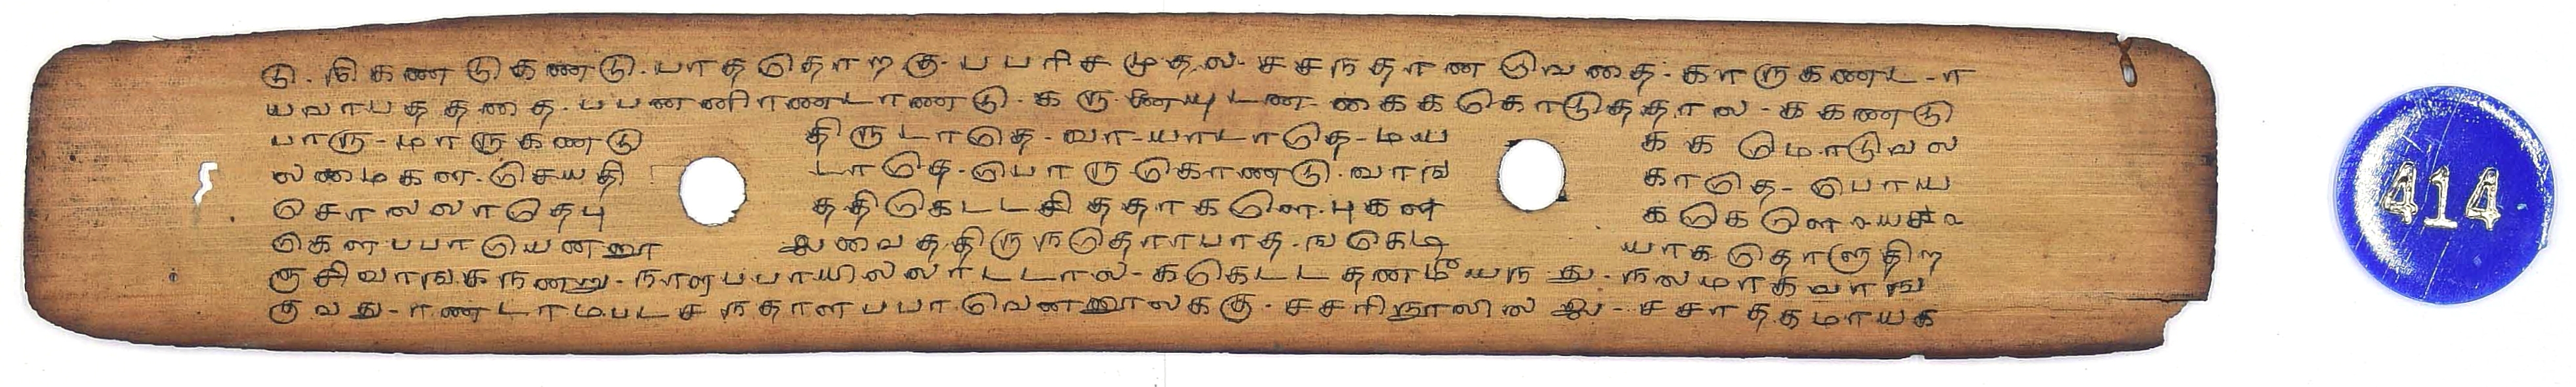 டு. கெண டுகணடு. யாத தொறகு. ப பரிச முதல. ச சநதாண வெதை. காருகணட - ா
யவாயத தனதை. ப பணணிரணடாணடு. க ரு. னையுடண. கைககொடுததால - ககணடு
பாரு - மாருகணடு திருடாதெ - வா - யாடாதெ - மய க க மொடுவல
லமைகள. செயதி டாதெ - பொ ரு கொணடு. வாங காதெ - பொய
சொலலாதெபு ததிகெடடசி ததாகளெ. புகள க கெளெ உயகஉ
கெளபபாயெனறூ அவைததிருநதொரபாத. ஙகெடி யாக தொளுதிற
ரு சிவாஙகநணறு - நாளபபாயிலலாடடால - க கெடட தணமீயந து. நலமாகவாங
குவது - ரணடாமபடச நதாளபபாவெனனூலககு. ச சரிநூலில அ - ச சாததமாயக
414